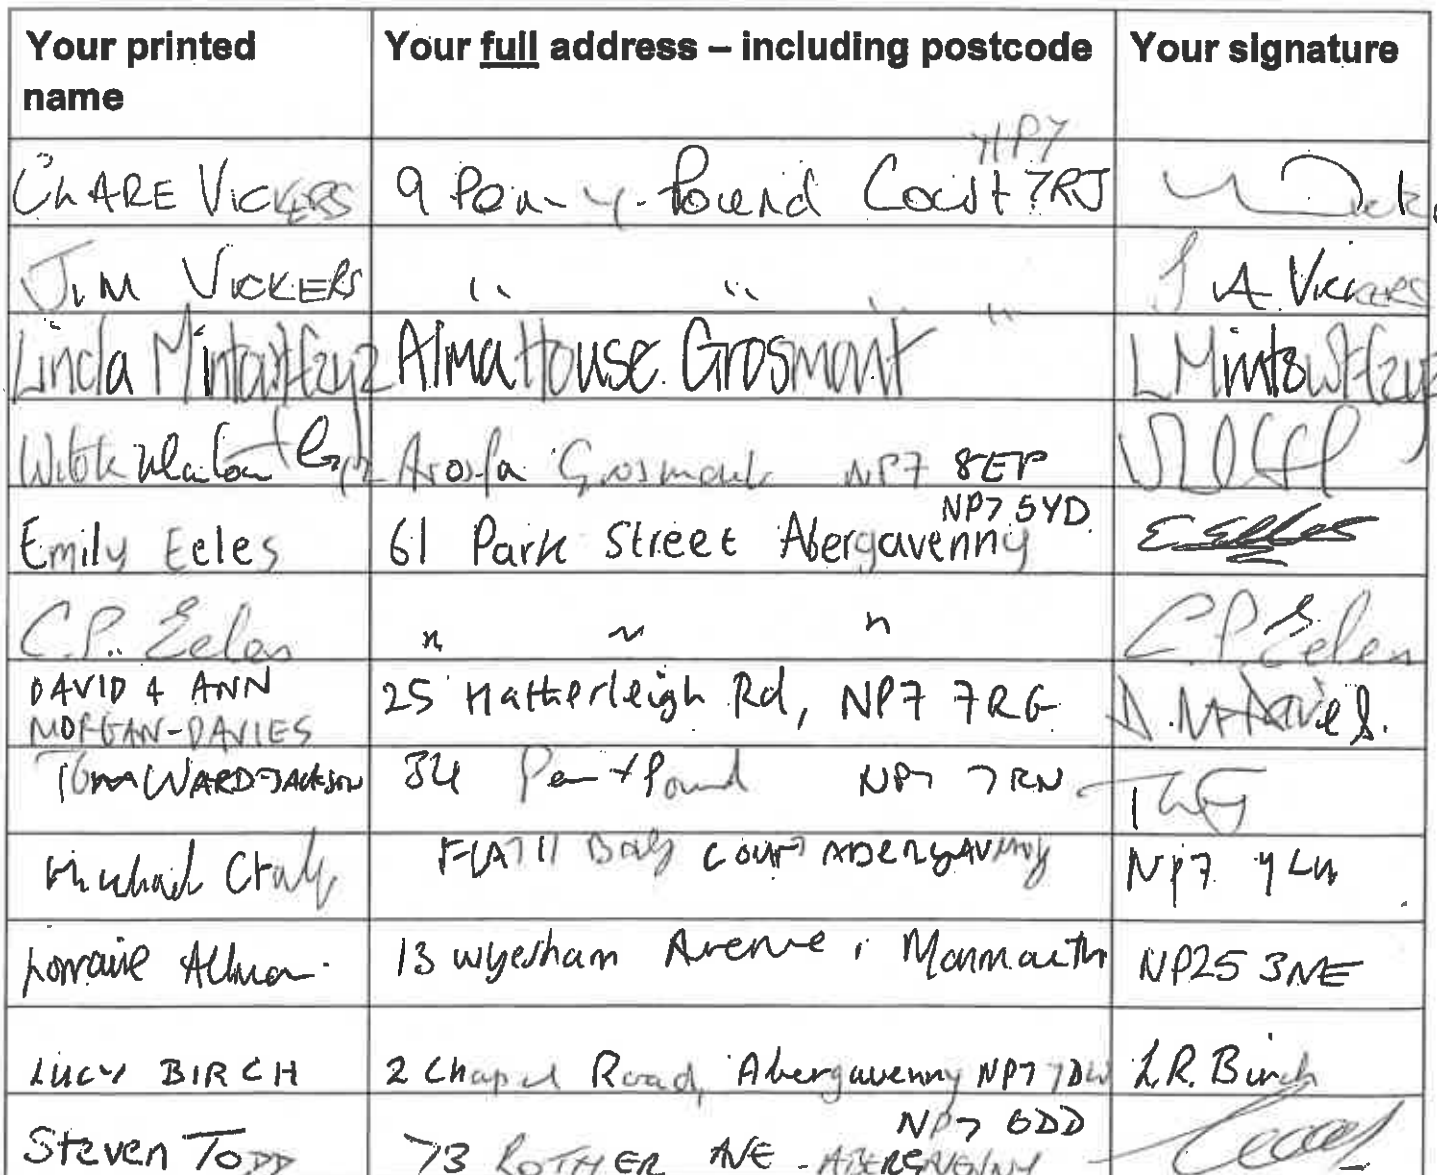 Your printed name
Your full address – including postcode
Your signature
ChARE VICKERS 9 Pen-y-Pound Court NP7 7RJ
JIM VICKERS " " " " J A Vickers
Linda Alma House Grosmont
Arosfa Grosmont NP7 8EP
Emily Eeles 61 Park Street Abergavenny NP7 5YD E Eeles
C.P. Eeles " " " C.P. Eeles
DAVID & ANN MORGAN-DAVIES 25 Hatherleigh Rd, NP7 7RG
TOM WARD-JACKSON 34 Pen-y-Pound NP7 7RN
Michael FLAT 11 COURT ABERGAVENNY NP7
Lorraine Allman 13 Wyesham Avenue, Monmouth NP25 3NE
LUCY BIRCH 2 Chapel Road, Abergavenny NP7 7DW L.R. Birch
Steven TODD 73 ROTHER AVE - ABERGAVENNY NP7 6DD